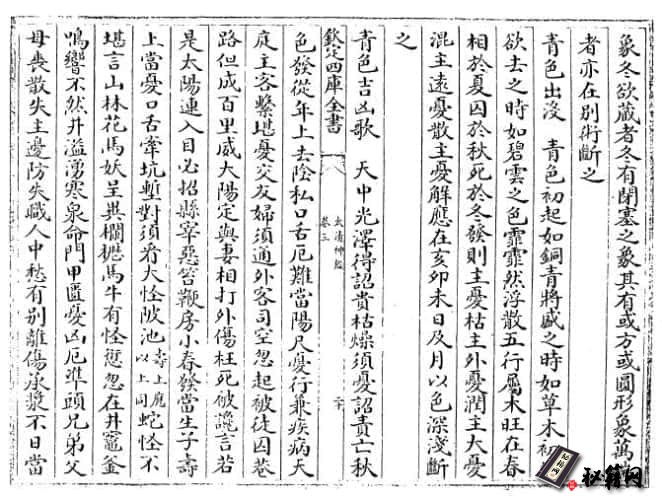 象冬欲藏者冬有閉塞之象其有或方或圓形象萬
者亦在别術斷之
青色出没　青色初起如銅青將盛之時如草木初
欲去之時如碧雲之色霏霏然浮散五行屬木旺在春
相於夏囚於秋死於冬發則主憂枯主外憂潤主大憂
混主遠憂散主憂解應在亥卯未日及月以色深淺斷
之
青色吉凶歌　天中光澤得詔貴枯燥須憂詔責亡秋
欽定四庫全書
太清神鑑
卷三
色發從年上去陰私口舌厄難當陽尺憂行兼疾病天
庭主客繫堪憂交友婦須通外客司空忽起被徒囚巷
路但成百里威大陽定與妻相打外傷枉死被讒言若
是太陽連入目必招縣宰惡笞鞭房小春發當生子壽
上當憂口舌牽坑塹對須看大怪陂池壽上麂以上同蛇怪不
堪言山林花馬妖呈異欄櫪馬牛有怪愆忽在井竈釜
鳴響不然井溢湧寒泉命門甲匱憂凶厄準頭兄弟父
母喪散失主邊防失職人中愁有别離傷承漿不日當
秘籍网